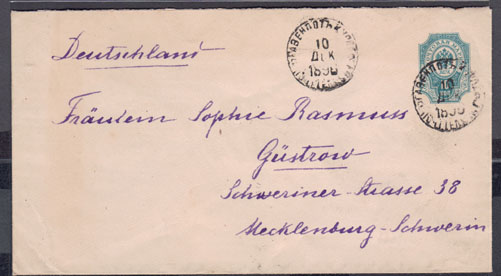 Deutschland
10
ДЕК
1890
10
ДЕК
1890
Fräulein Sophie Rasmuss
Güstrow
Schweriner-Strasse 38
Mecklenburg-Schwerin